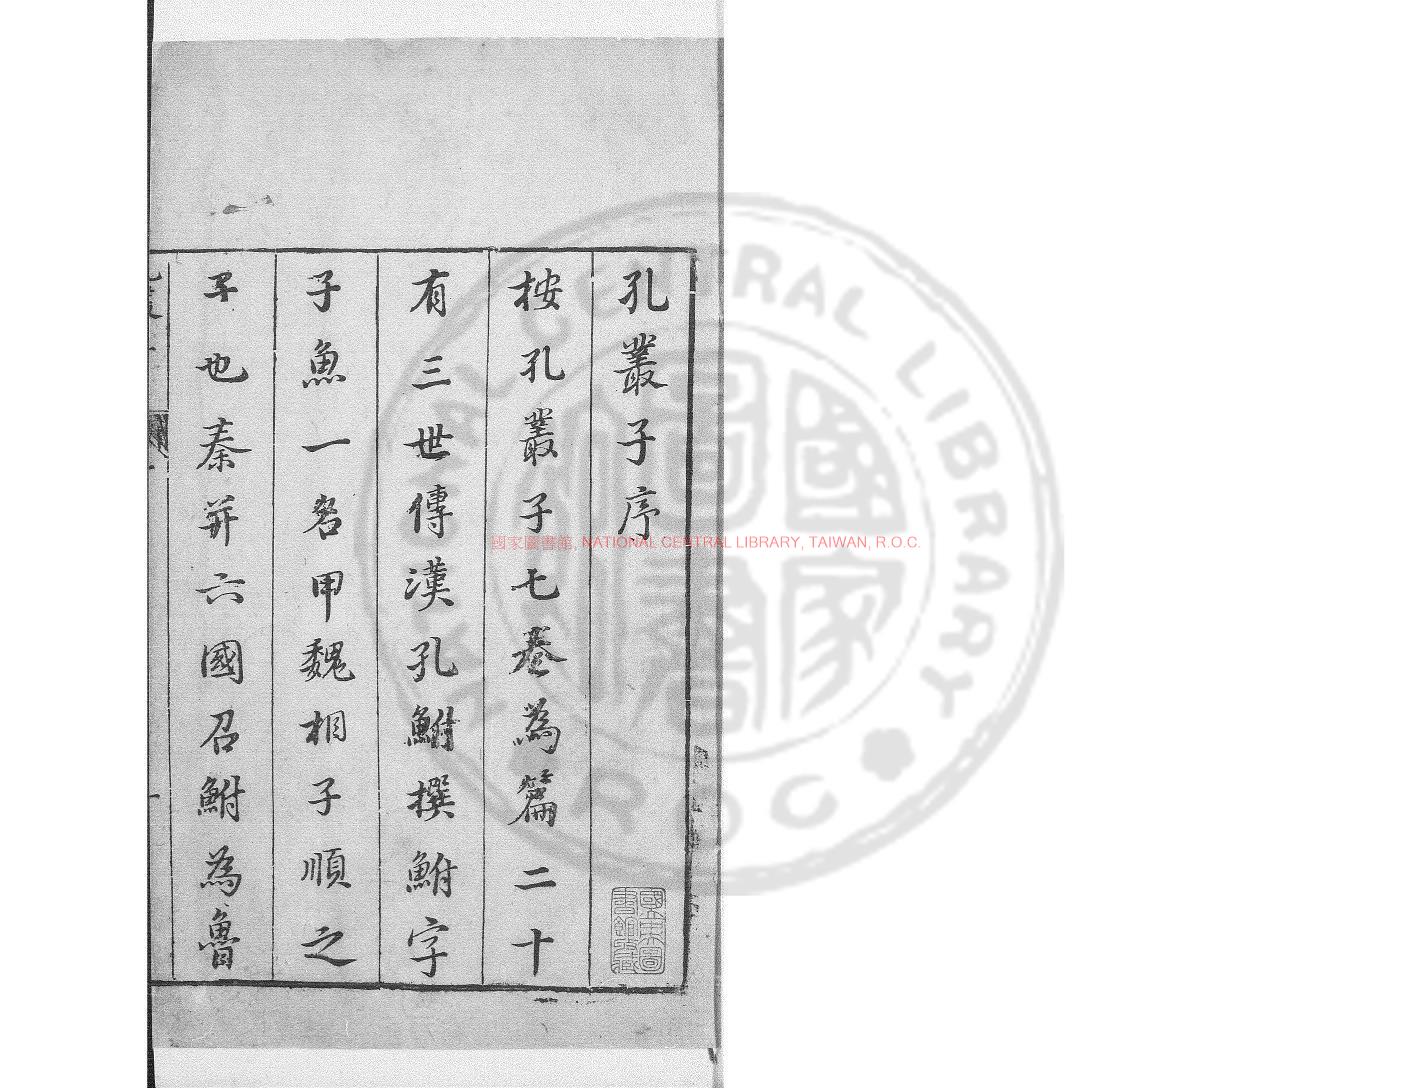 孔叢子序
按孔叢子七卷為篇二十
有三世傳漢孔鮒撰鮒字
子魚一名甲魏相子順之
子也秦并六國召鮒為魯
國家圖書館, NATIONAL CENTRAL LIBRARY, TAIWAN, R.O.C.
NATIONAL CENTRAL LIBRARY R.O.C
國家圖書館
國立中央圖書館收藏